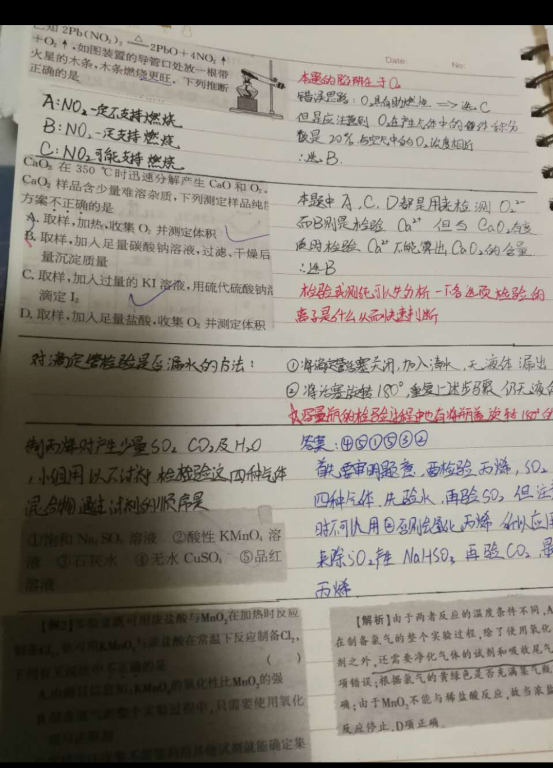 已知 2Pb(NO₃)₂ △ 2PbO+4NO₂↑
+O₂↑,如图装置的导管口处放一根带
火星的木条,木条燃烧更旺,下列推断
正确的是
A:NO₂一定不支持燃烧
B:NO₂一定支持燃烧
C:NO₂可能支持燃烧
Date: No:
本题的陷阱在于O₂
错误思路:O₂具有助燃性 => 选C
但是应注意到 O₂在产生气体中的
数是20% 与空气中的O₂浓度相近
∴选B.
CaO₂ 在 350 ℃时迅速分解产生 CaO 和 O₂。
CaO₂ 样品含少量难溶杂质,下列测定样品纯
方案不正确的是
A. 取样,加热,收集 O₂ 并测定体积
B. 取样,加入足量碳酸钠溶液,过滤、干燥后
量沉淀质量
C. 取样,加入过量的 KI 溶液,用硫代硫酸钠
滴定 I₂
D. 取样,加入足量盐酸,收集 O₂ 并测定体积
本题中 A、C、D都是用来检测 O₂²⁻
而B则是检验 Ca²⁺ 但 CaO₂
检验 Ca²⁺ 不能算出CaO₂的含量
∴选B
检验或测纯可以先分析一下各选项检验的
离子是什么从而快速判断
对滴定管检验是否漏水的方法:
①将滴定管活塞关闭,加入清水,无液体漏出
②将活塞旋转180°,重复上述步骤仍无液
容量瓶的检验过程中也有将瓶盖旋转180°
制丙烯时产生少量SO₂ CO₂及H₂O
,小组用以下试剂检验这四种气体
混合物通过试剂的顺序是
①饱和 Na₂SO₃ 溶液 ②酸性 KMnO₄ 溶
液 ③石灰水 ④无水 CuSO₄ ⑤品红
溶液
答案:④⑤①⑤③②
首先要审明题意,要检验丙烯,SO₂
四种气体 先验水,再验SO₂ 但注
时不可以用②否则会氧化丙烯 所以应
来除SO₂产生 NaHSO₃ 再验CO₂
丙烯
【例2】实验室既可用浓盐酸与MnO₂在加热时反应
制备Cl₂,也可用KMnO₄与浓盐酸在常温下反应制备Cl₂,
下列有关说法中不正确的是 ( )
A.由题目信息知:KMnO₄的氧化性比MnO₂的强
B.制备氯气的整个实验过程中,只需要使用氧化
【解析】由于两者反应的温度条件不同,A
在制备氯气的整个实验过程,除了使用氧化
剂之外,还需要净化气体的试剂和吸收尾气
项错误;根据氯气的黄绿色是否充满集气瓶
确;由于MnO₂不能与稀盐酸反应,故当浓盐
反应停止,D项正确。